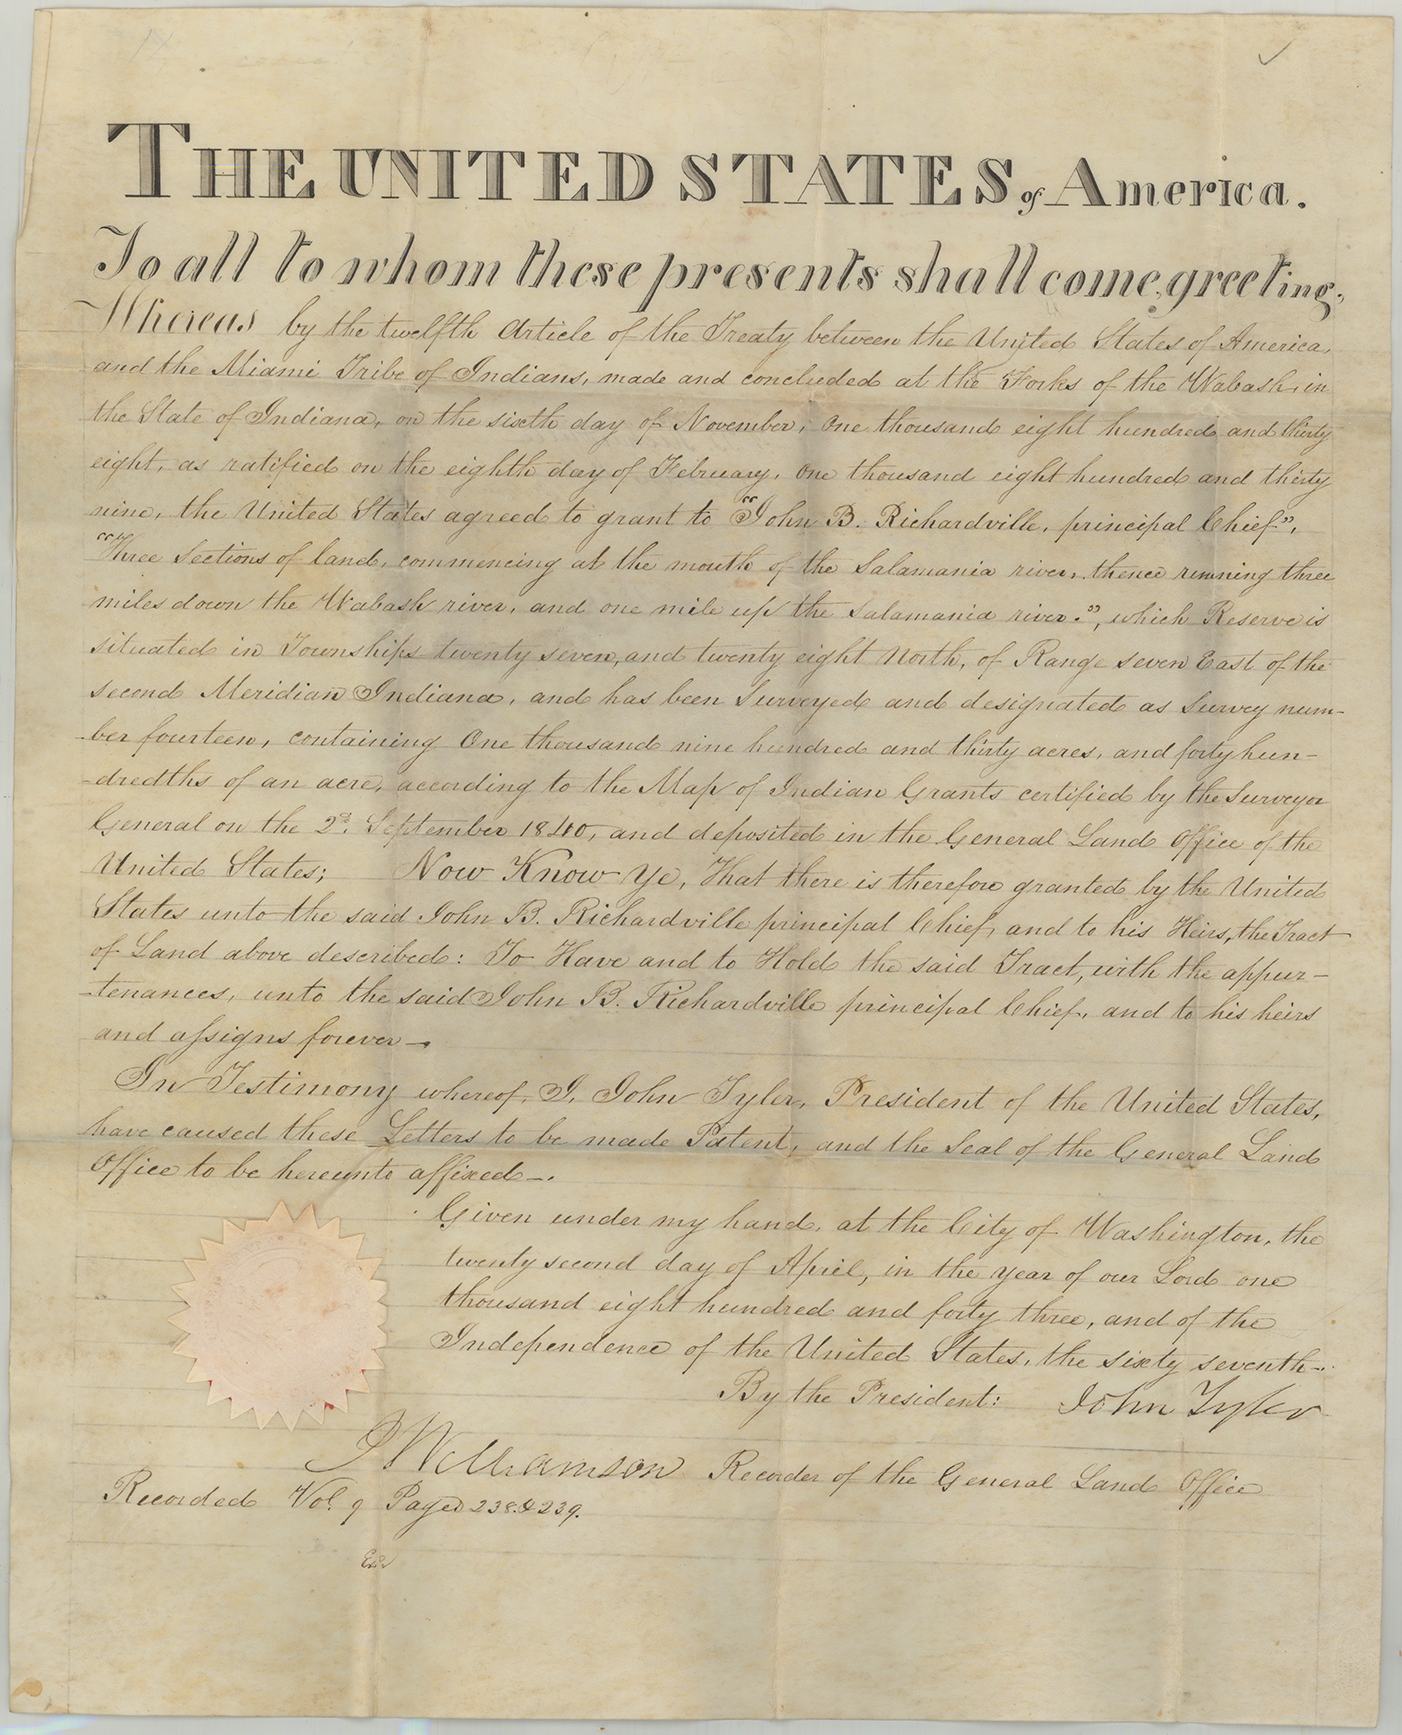 THE UNITED STATES of America.
To all to whom these presents shall come, greeting;
Whereas by the twelfth Article of the Treaty between the United States of America,
and the Miami Tribe of Indians, made and concluded at the Forks of the Wabash, in
the State of Indiana, on the sixth day of November, One thousand eight hundred and thirty
eight, as ratified on the eighth day of February, one thousand eight hundred and thirty
nine, the United States agreed to grant to "John B. Richardville, principal Chief",
"Three Sections of land, commencing at the mouth of the Salamania river, thence running three
miles down the Wabash river, and one mile up the Salamania river.", which Reserve is
situated in Townships twenty seven, and twenty eight North, of Range seven East of the
second Meridian Indiana, and has been Surveyed and designated as Survey num-
-ber fourteen, containing One thousand nine hundred and thirty acres, and forty hun-
-dredths of an acre, according to the Map of Indian Grants certified by the Surveyor
General on the 2d. September 1840, and deposited in the General Land Office of the
United States; Now Know Ye, That there is therefore granted by the United
States unto the said John B. Richardville principal Chief, and to his Heirs, the Tract
of Land above described: To Have and to Hold the said Tract, with the appur-
-tenances, unto the said John B. Richardville principal Chief, and to his heirs
and assigns forever—.
In Testimony whereof, I, John Tyler, President of the United States,
have caused these Letters to be made Patent, and the Seal of the General Land
Office to be hereunto affixed—.
Given under my hand, at the City of Washington, the
twenty second day of April, in the year of our Lord one
thousand eight hundred and forty three, and of the
Independence of the United States, the sixty seventh—.
By the President: John Tyler
J Williamson Recorder of the General Land Office
Recorded Vol. 9 Pages 238 & 239.